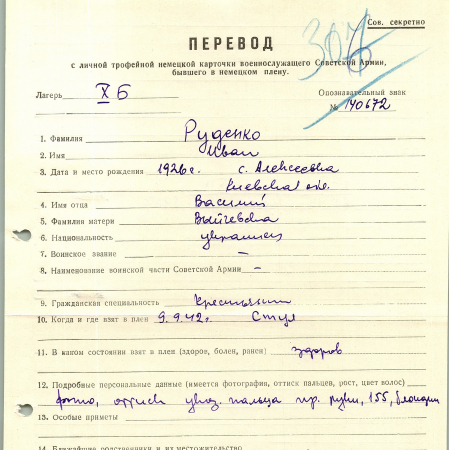 Сов. секретно
307
ПЕРЕВОД
с личной трофейной немецкой карточки военнослужащего Советской Армии,
бывшего в немецком плену.
Лагерь X Б
Опознавательный знак
№ 140672
1. Фамилия Руденко
2. Имя Иван
3. Дата и место рождения 1926г. с. Алексеевка
Киевская обл.
4. Имя отца Василий
5. Фамилия матери
6. Национальность украинец
7. Воинское звание —
8. Наименование воинской части Советской Армии —
9. Гражданская специальность Крестьянин
10. Когда и где взят в плен 9.9.42г.
11. В каком состоянии взят в плен (здоров, болен, ранен) здоров
12. Подробные персональные данные (имеется фотография, оттиск пальцев, рост, цвет волос)
фото, оттиск указ. пальца пр. руки, 155, блондин
13. Особые приметы
14. Ближайшие родственники и их местожительство